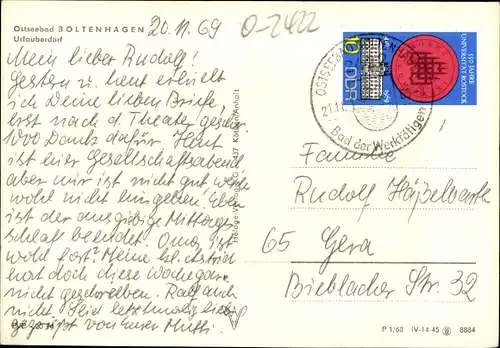 Ostseebad BOLTENHAGEN
Urlauberdorf
20.11.69
O-2422
Mein lieber Rudolf!
Gestern u. heut erhielt
ich Deine lieben Briefe,
erst nach d. Theater gestern.
1000 Dank dafür. Heut
ist hier Gesellschaftsabend
aber mir ist nicht gut, werde
wohl nicht hingehen. Eben
ist der ausgiebige Mittags
schlaf beendet. Oma ist
wohl fort? Meine
hat doch diese Woche gar
nicht geschrieben. Ralf auch
nicht. Seid letztmalig lieb
gegrüsst von Eurer Mutti.
10 DDR
550 JAHRE
UNIVERSITÄT ROSTOCK
1969
OSTSEEBAD
21.11
Bad der Werktätigen
Familie
Rudolf
65 Gera
Bieblacher Str. 32
P 1/68 IV-14-45 8884